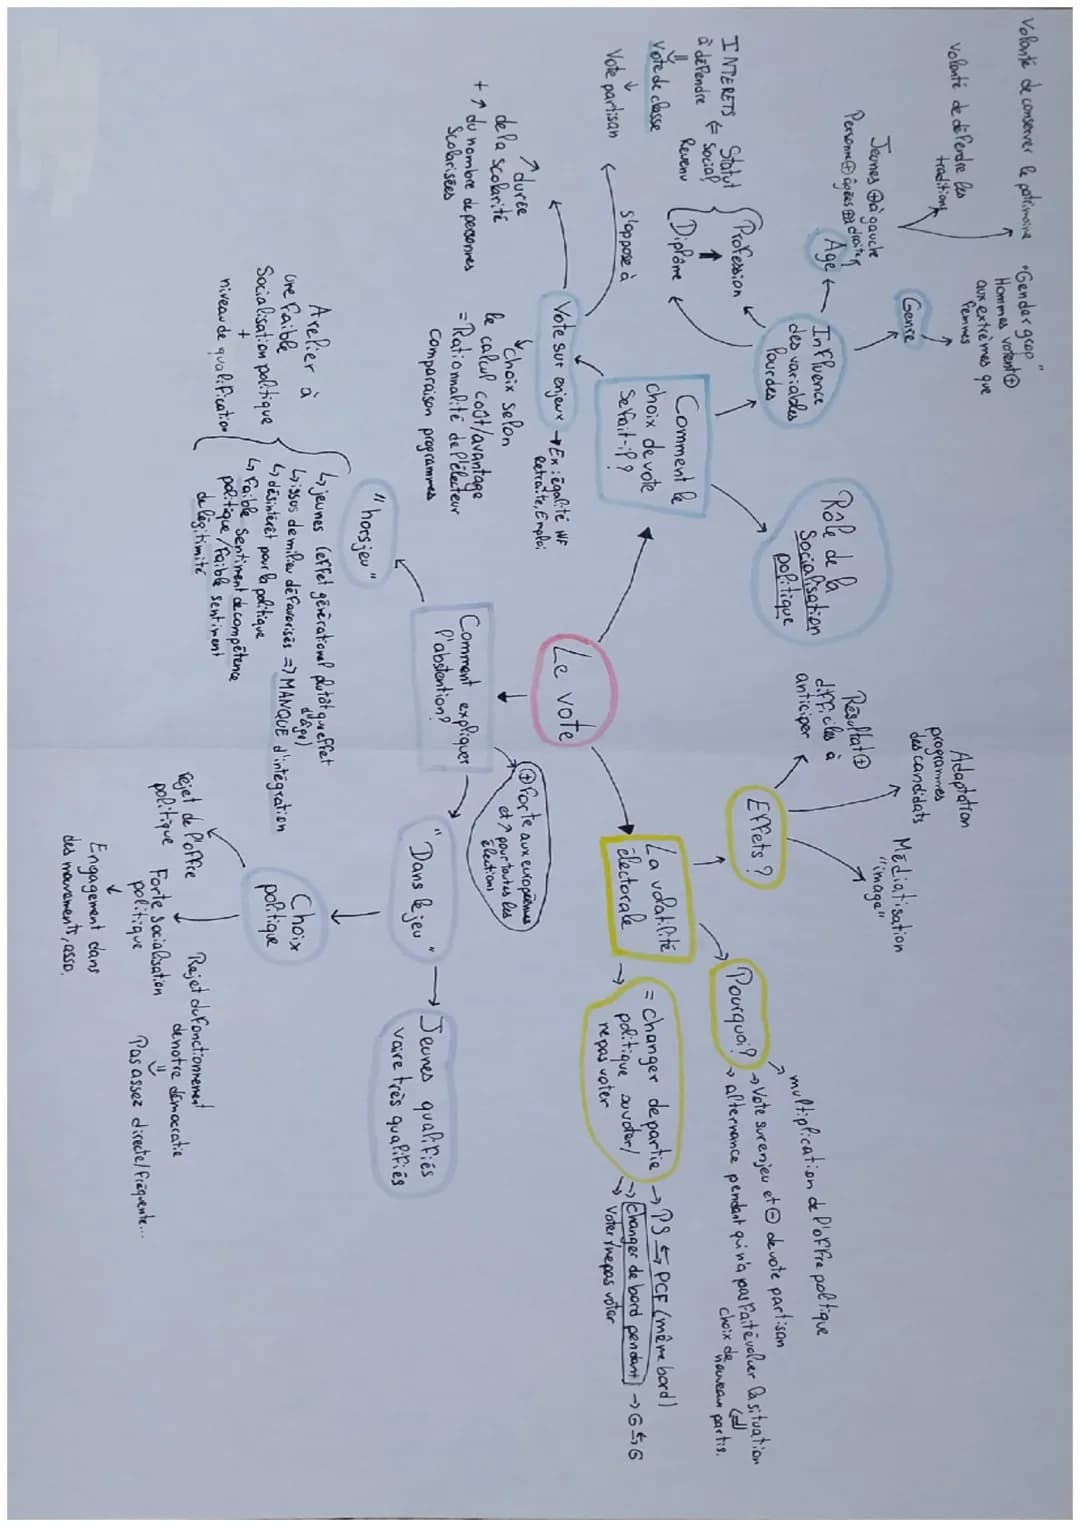 Le vote
Comment le
choix de vote
se fait-il ?
Rôle de la
Socialisation
politique
Influence
des variables
lourdes
Genre
"Gender gap"
Hommes votent ⊕
aux extrêmes que
femmes
Age
Jeunes ⊕ à gauche
Personne ⊕ âgées ⊕ à droite
Volonté de conserver le patrimoine
Volonté de défendre les
traditions
Profession
Diplôme
Statut
Social
Revenu
INTERETS
à défendre
Vote de classe
Vote partisan
s'oppose à
Vote sur enjeux
→ Ex : égalité HF
Retraite, Emploi
↗ durée
de la scolarité
+ ↗ du nombre de personnes
Scolarisées
choix selon
le calcul coût/avantage
= Rationnalité de l'électeur
comparaison programmes
Comment expliquer
l'abstention ?
⊕ forte aux européennes
et ↗ pour toutes les
élections
"hors jeu"
↳ jeunes (effet générationel plutôt qu'effet
d'âge)
↳ issus de milieu défavorisés => MANQUE d'intégration
↳ désintérêt pour la politique
↳ Faible sentiment de compétence
politique / faible sentiment
de légitimité
A relier à
une faible
Socialisation politique
+
niveau de qualification
"Dans le jeu"
→ Jeunes qualifiés
voire très qualifiés
Choix
politique
rejet de l'offre
politique
Forte socialisation
politique
Engagement dans
des mouvements, asso.
Rejet du fonctionnement
de notre démocratie
Pas assez directe/fréquente...
La volatilité
électorale
Effets ?
Résultat ⊕
difficiles à
anticiper
Adaptation
programmes
des candidats
Médiatisation
"image"
Pourquoi ?
→ multiplication de l'offre politique
→ Vote sur enjeu et ⊖ de vote partisan
→ alternance pendant qui n'a pas fait évoluer la situation
choix de
nouveaux partis.
= changer de partie
politique ou voter/
ne pas voter
→ PS ⇆ PCF (même bord)
→ Changer de bord pendant → G ⇆ G
→ Voter/ne pas voter